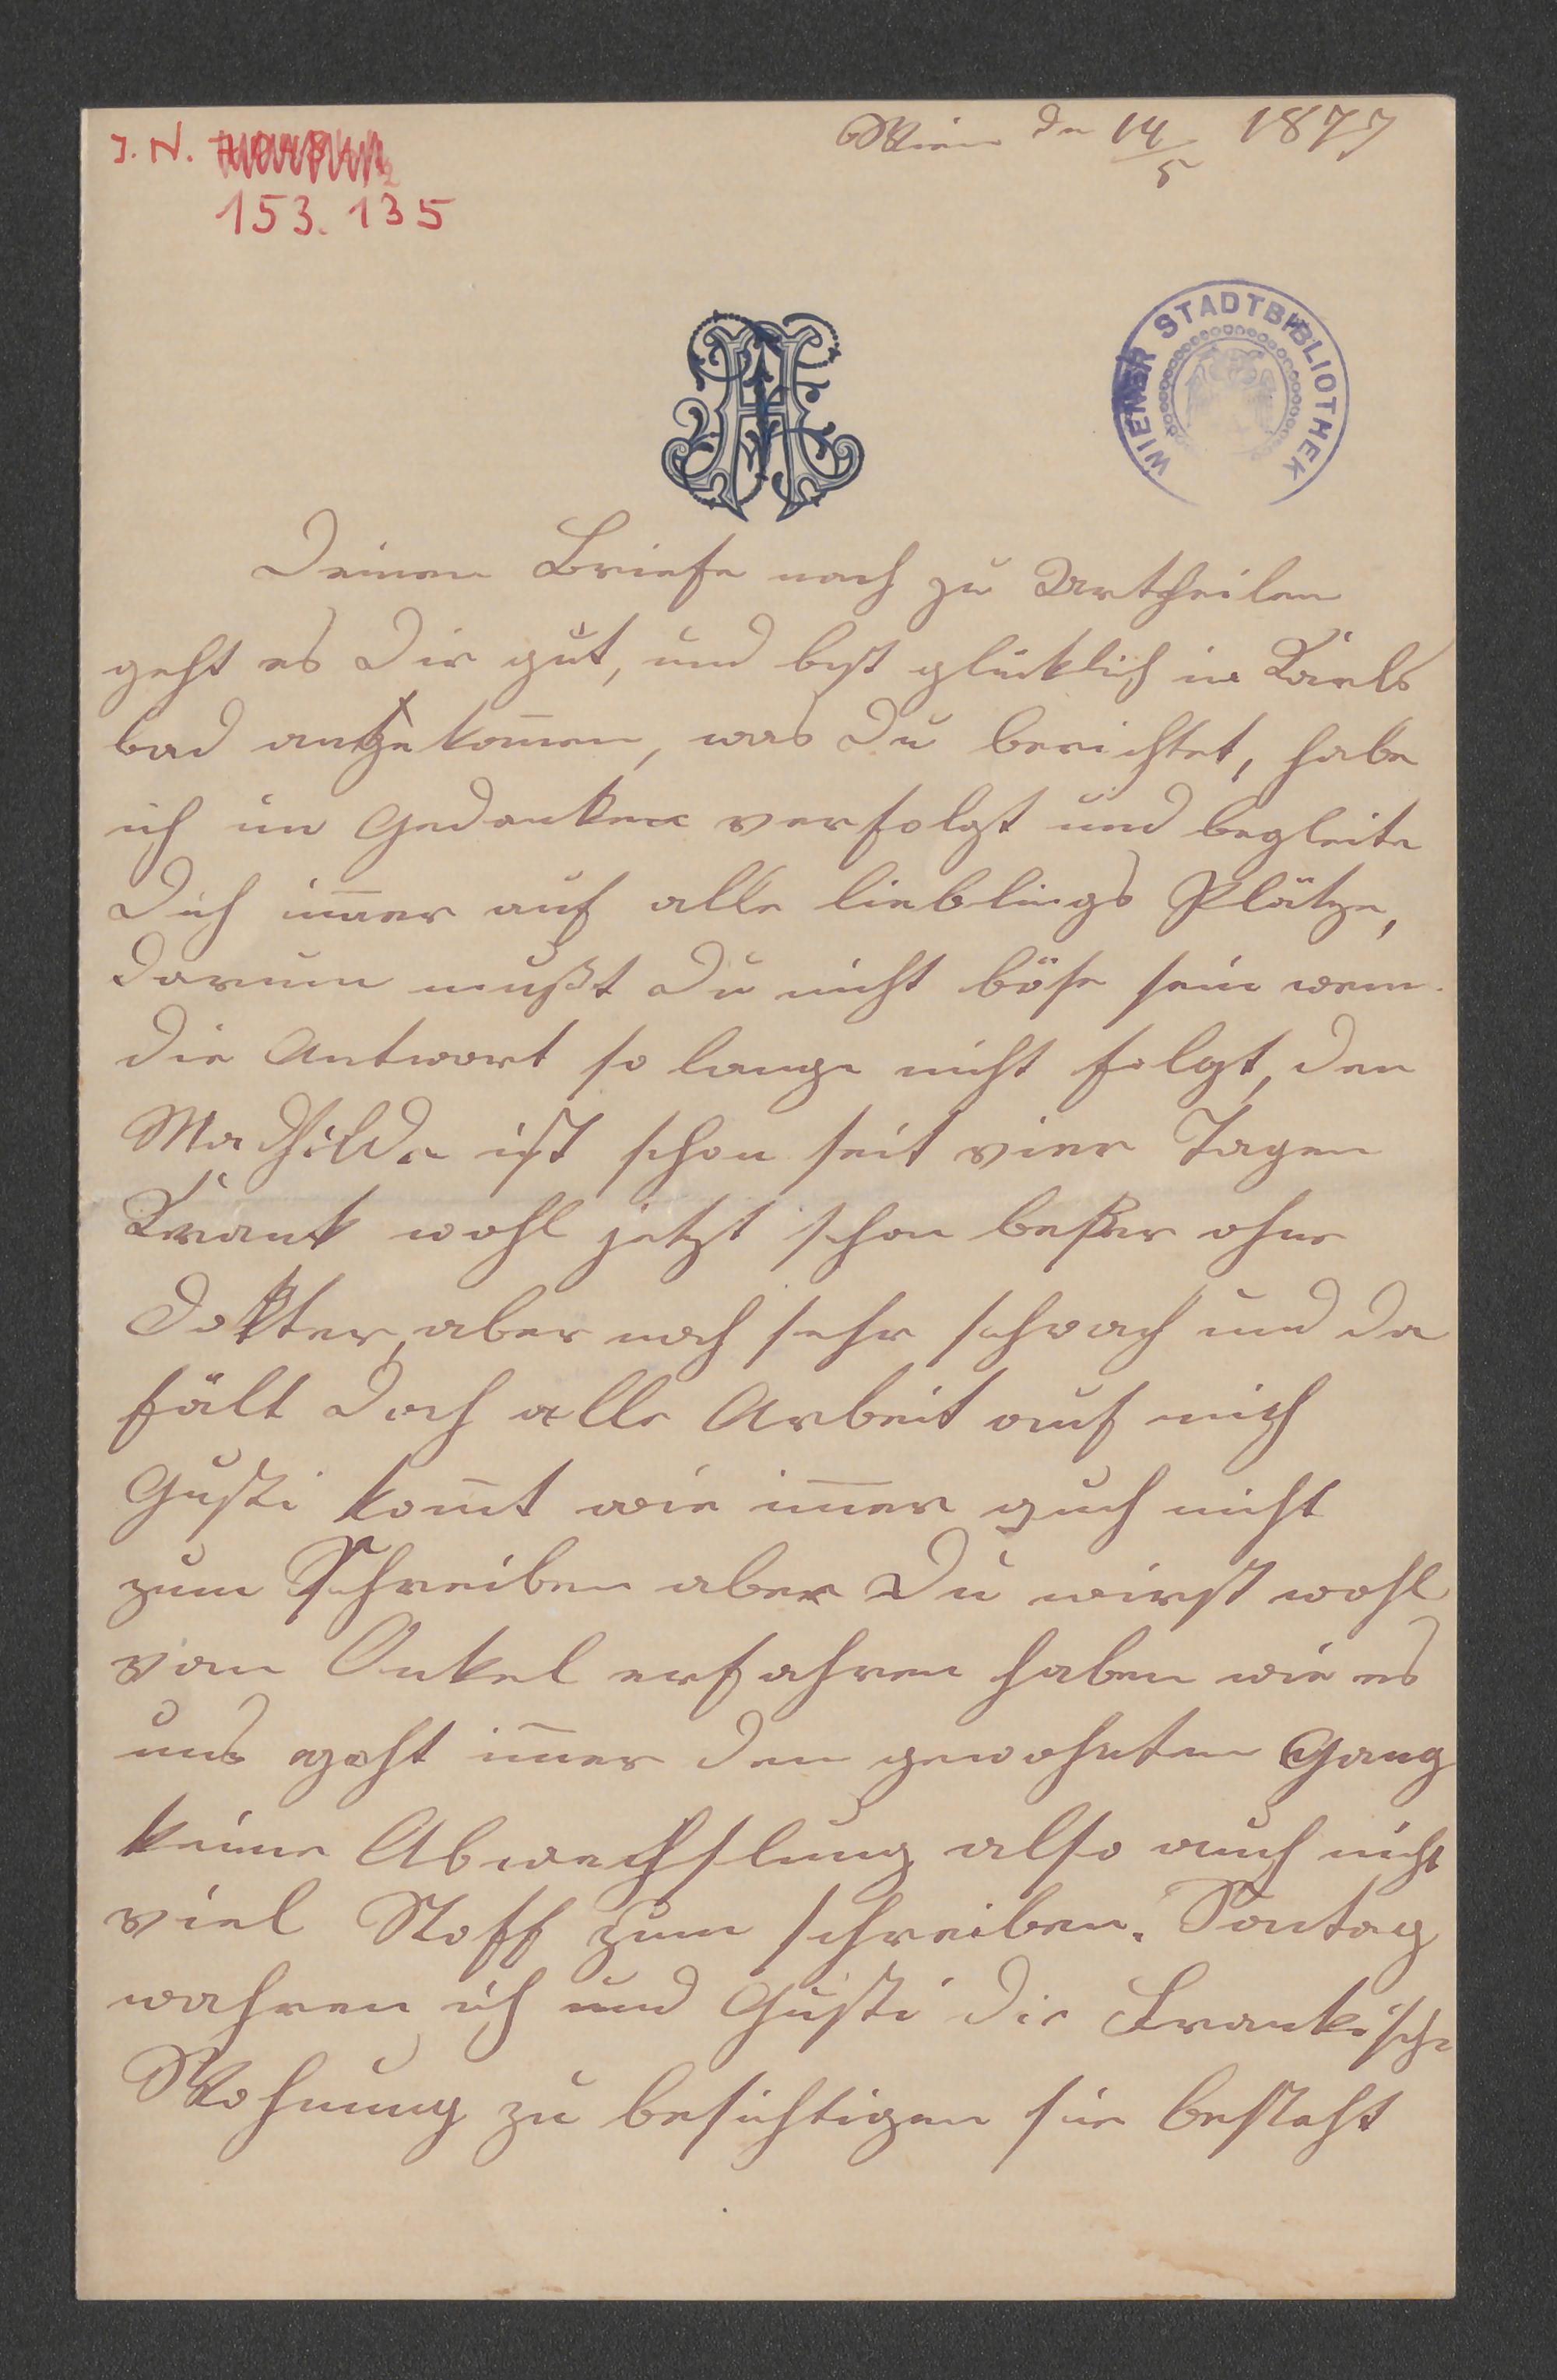 J. N.
153.135
Wien den 14/5 1877
WIENER STADTBIBLIOTHEK
Deinen Briefe nach zu Urtheilen
geht es Dir gut, und bist glücklich in Karls
bad angekom̄en, was Du berichtet, habe
ich im Gedanken verfolgt und begleite
Dich im̄er auf alle lieblings Plätze,
darum mußt Du nicht böse sein wenn
die Antwort so lange nicht folgt, den
Mathilde ist schon seit vier Tagen
Krank wohl jetzt schon beßer ohne
Dokter, aber noch sehr schwach und da
fält doch alle Arbeit auf mich
Gusti kom̄t wie im̄er auch nicht
zum Schreiben aber Du wirst wohl
von Onkel erfahren haben wie es
uns geht im̄er den gewohnten Gang
keine Abwechslung also auch nicht
viel Stoff zum schreiben. Sontag
wahren ich und Gusti die Frankische
Wohnung zu besichtigen sie besteht